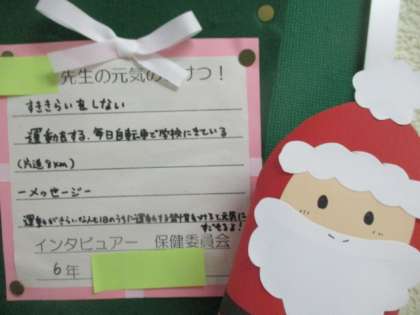 先生の元気の つ!
すききらいをしない
運動をする、毎日自転車で学校にきている
(片道8km)
ーメッセージー
運動がきらいな人も1日のうちに運動する習慣をつけると元気に
なれるよ!
インタビュアー 保健委員会
6年